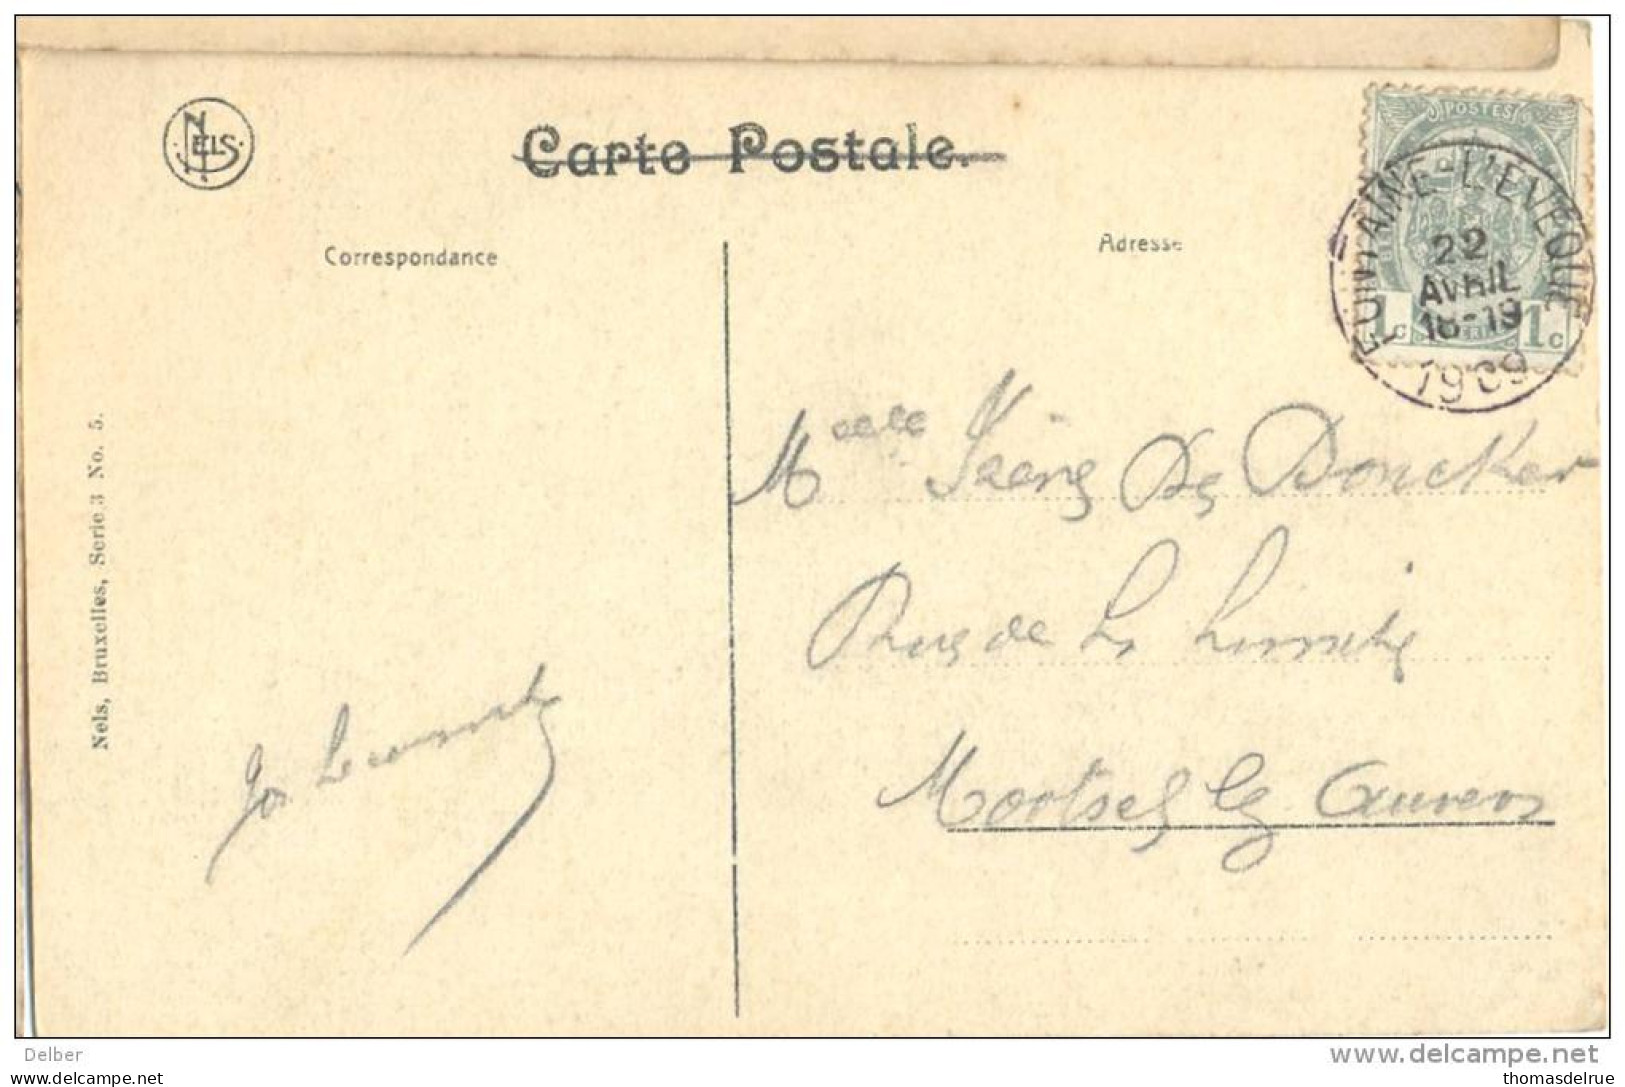 NELS
Carte Postale.
Correspondance
Adresse
POSTES
FONTAINE-L'EVEQUE
22
AVRIL
18-19
1909
1c 1c
Melle Irène De Doncker
Rue de la Limite
Mortsel lez Anvers
Jos
Nels, Bruxelles, Serie 3 No. 5.
Delber
delcampe
www.delcampe.net
thomasdelrue